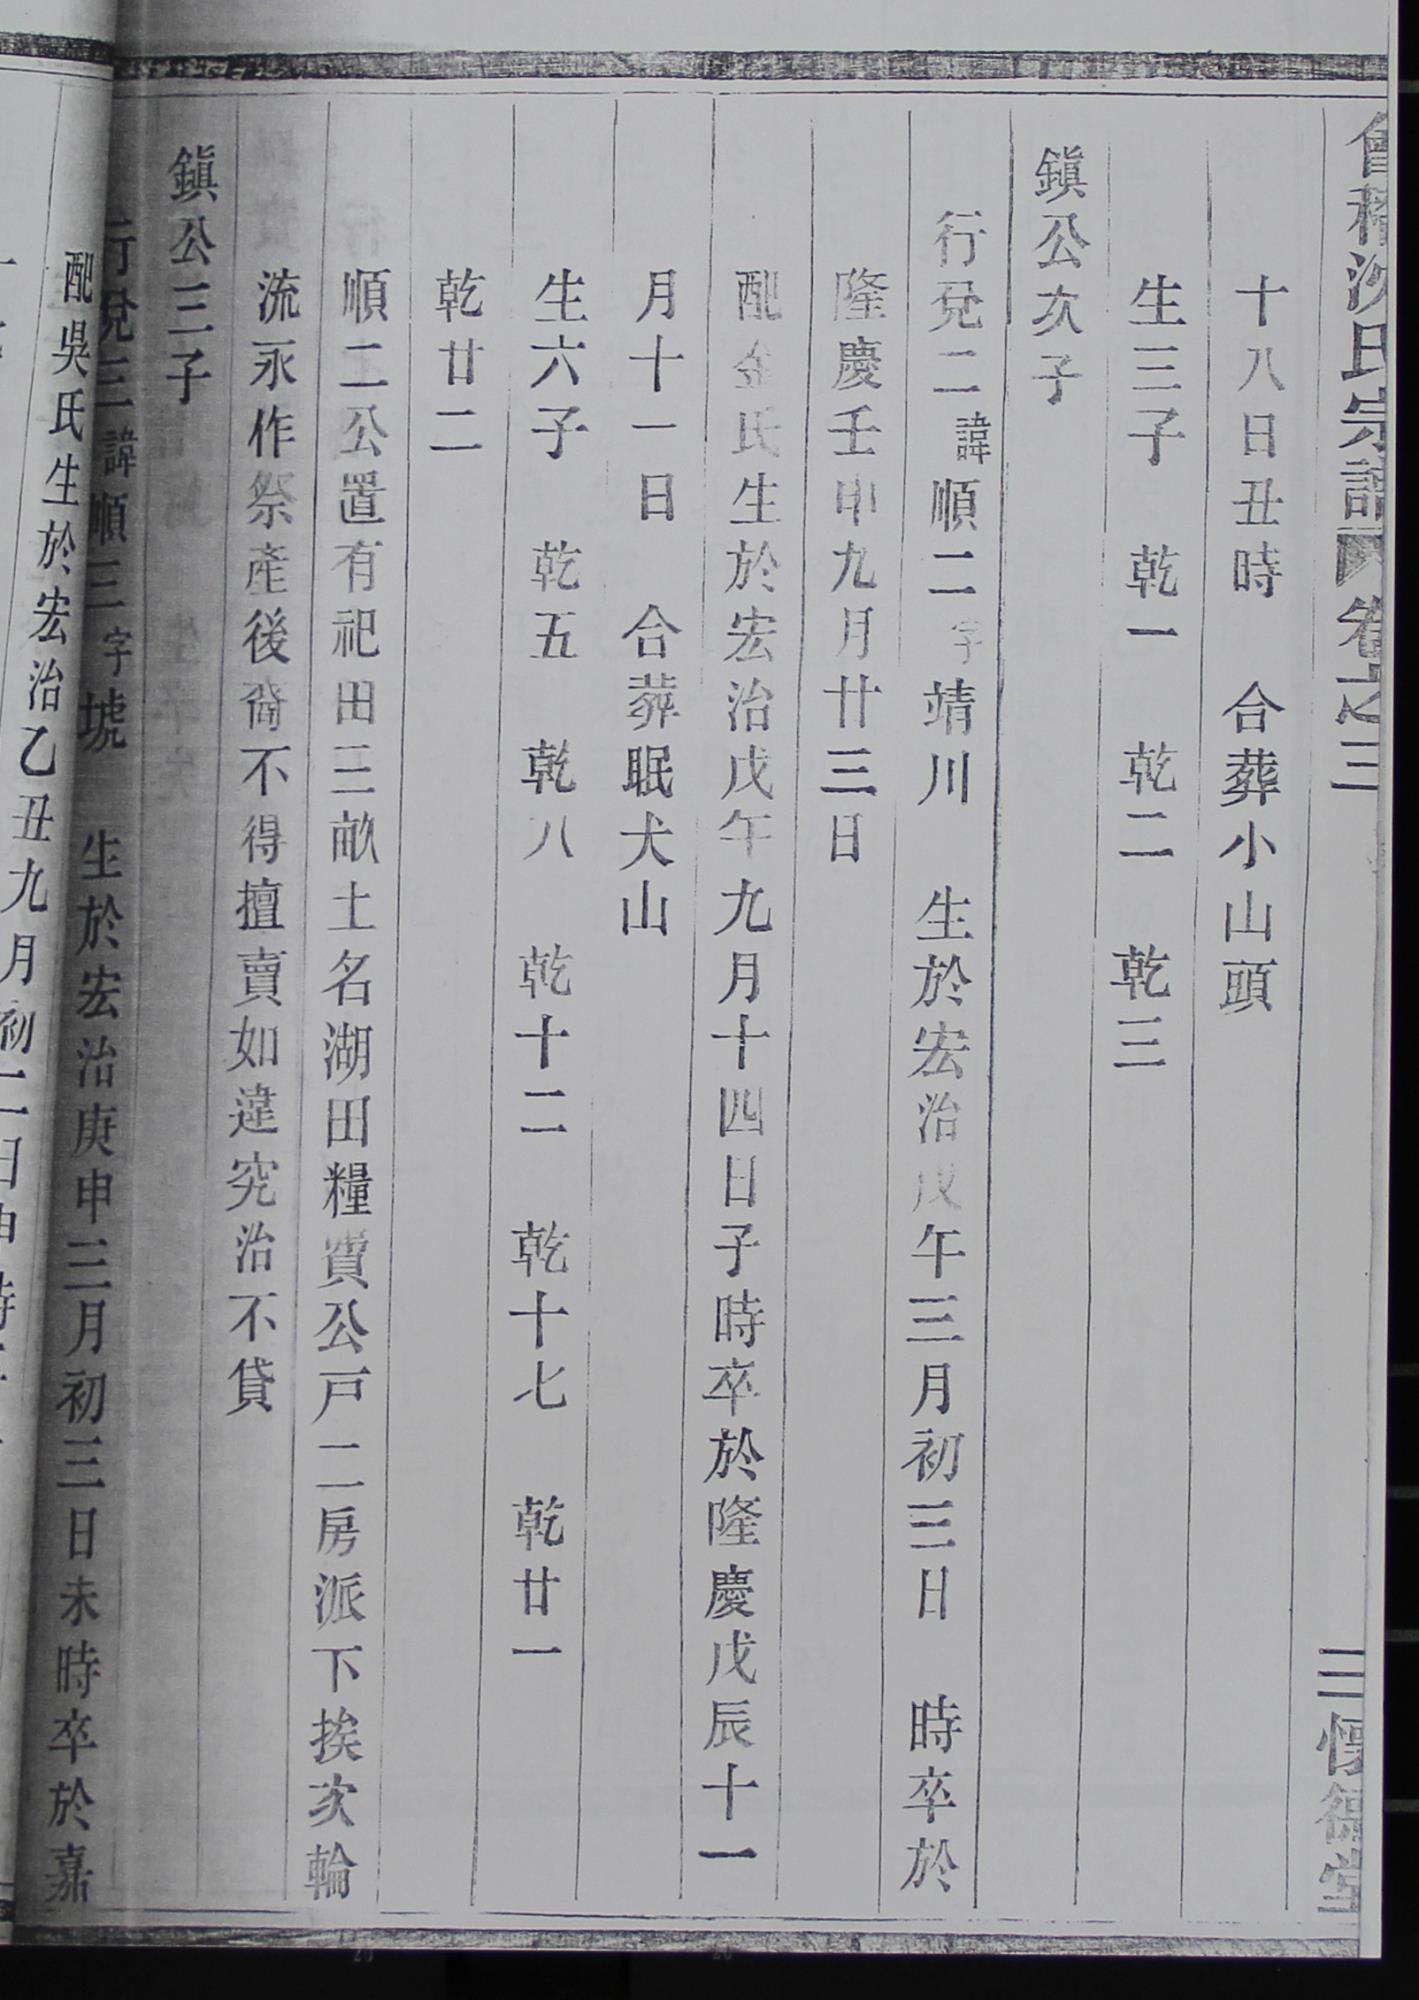 會稽沈氏宗譜 卷之三 三 懷德堂
十八日丑時 合葬小山頭
生三子 乾一 乾二 乾三
鎭公次子
行兌二諱順二字靖川 生於宏治戊午三月初三日 時卒於
隆慶壬申九月廿三日
配金氏生於宏治戊午九月十四日子時卒於隆慶戊辰十一
月十一日 合葬眠犬山
生六子 乾五 乾八 乾十二 乾十七 乾廿一
乾廿二
順二公置有祀田三畝土名湖田糧實公戸二房派下挨次輪
流永作祭產後裔不得擅賣如違究治不貸
鎭公三子
行兌三諱順三字墟 生於宏治庚申三月初三日未時卒於嘉
配吳氏生於宏治乙丑九月初二日申時